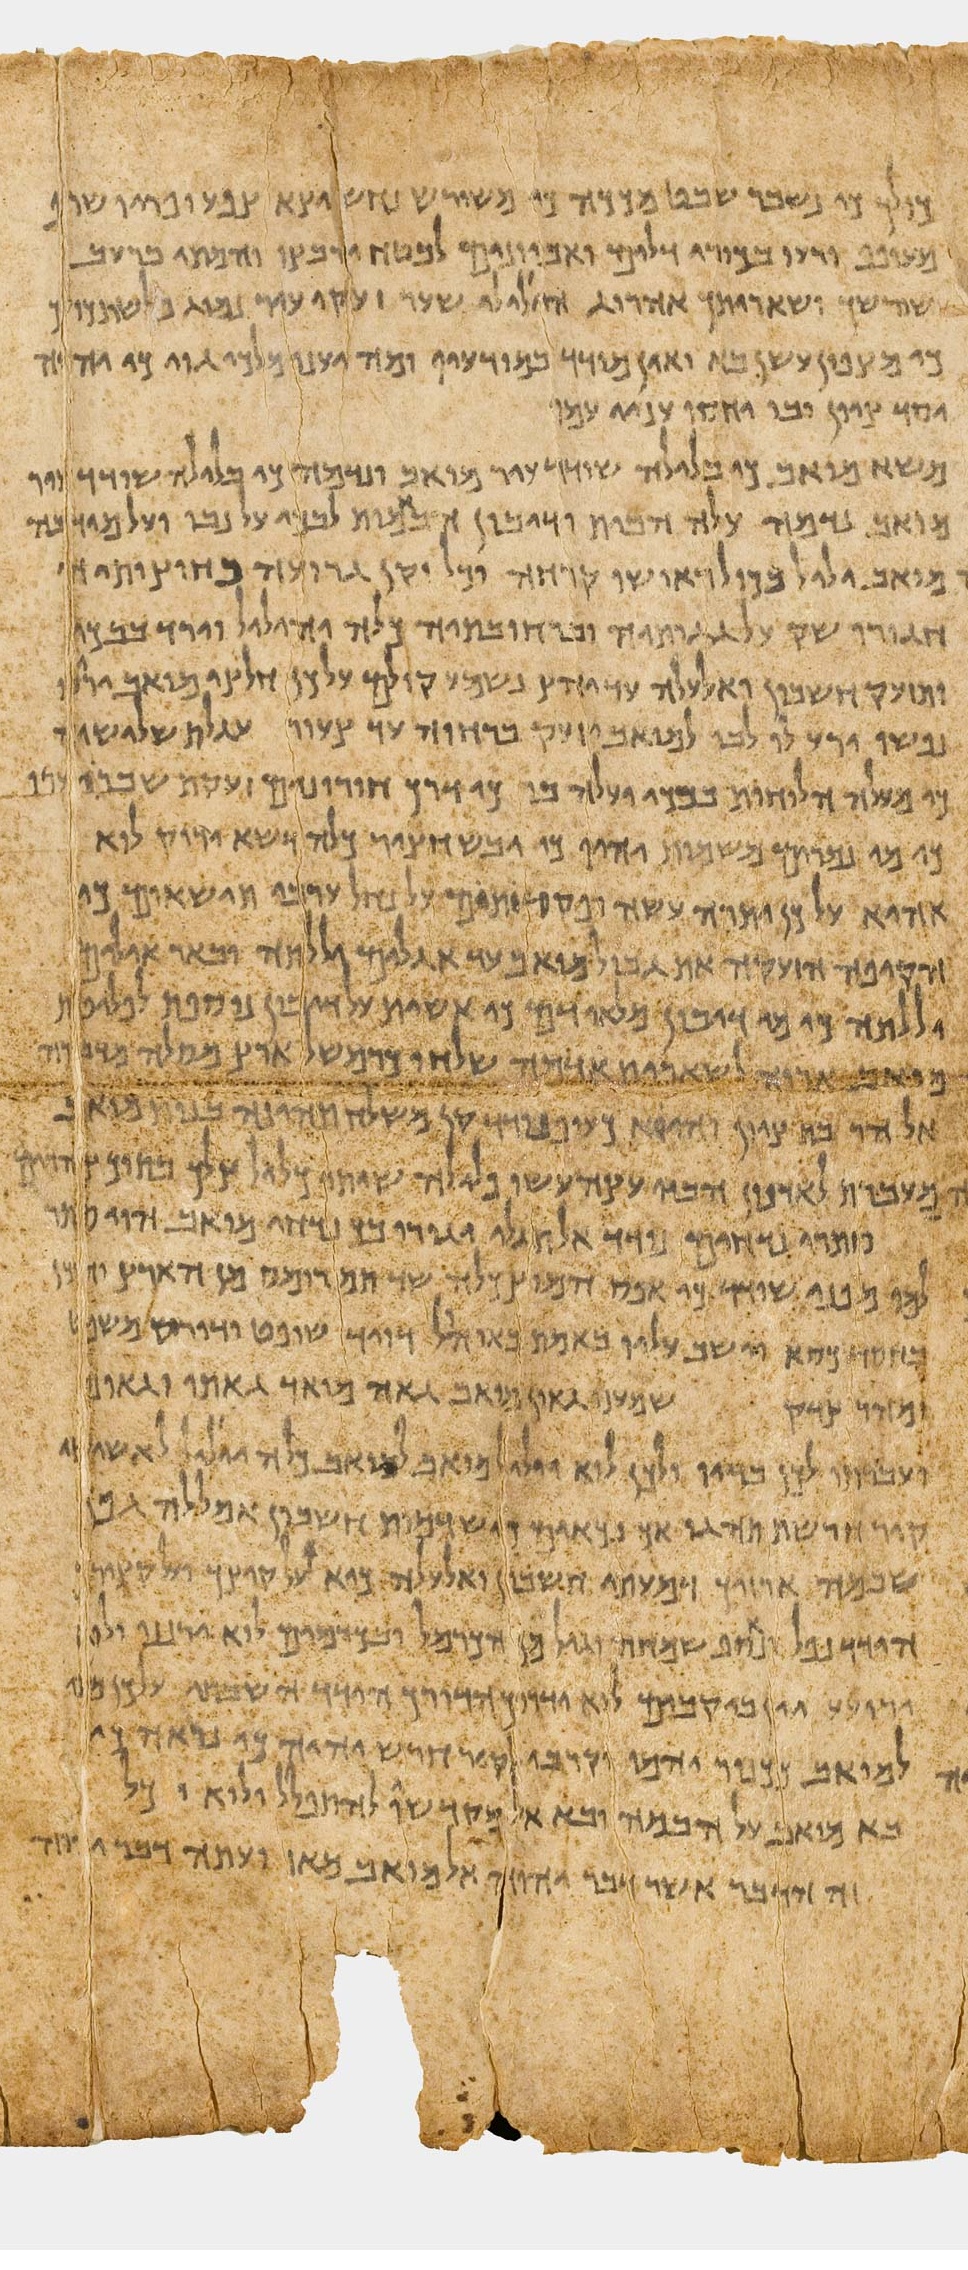 כולך כי נשבר שבט מככה כי משורש נחש יצא צפע ופריו שרף
מעופף ורעו בכורי דלים ואביונים לבטח ירבצו והמתי ברעב
שורשך ושאריתך אהרוג הילילי שער זעקי עיר נמוג פלשת כולך
כי מצפון עשן בא ואין מודד במודעיו ומה יענו מלכי גוי כי יהוה
יסד ציון ובו יחסו עניי עמו
משא מואב כי בלילה שודד עיר מואב ונדמה כי בלילה שודד עיר
מואב נדמה עלה הבית ודיבון הבאמות לבכי על נבו ועל מידבה
מואב ילילו בכול ראושו קרחה וכל זקן גרועה בחוצותיה
חגורו שק על גגותיה וברחובתיה כלה יהיליל וירד בבכי
ותזעק חשבון ואלעלה עד יהץ נשמע קולם על כן חלצי מואב יריעו
נפשו ירעה לו לבו למואב יזעק ברחוה עד צעור עגלת שלישיה
כי מעלה הלוחית בבכי יעלה בו כי דרך חורונים זעקת שבר
כי מי נמרים משמות יהיו כי יבש חציר כלה דשא ירוק לוא
אהיא על כן יתרה עשה ופקדתים על נחל ערבי ישאום כי
הקיפה הזעקה את גבול מואב עד אגלים יללתה ובאר אילים
יללתה כי מי דיבון מלאו דם כי אשית על דיבון לפליטת
מואב אריה ולשארית אדמה שלחו כר משל ארץ מסלע מדברה
אל הר בת ציון והיה כעוף נודד קן משלח תהיינה בנות מואב
מעברת לארנון הביאי עצה עשו פלילה שיתי כליל צלך בתוך צהרים
סותרי נדחים נודד אל תגלי יגורו בך נדחי מואב הוי סתר
למו מפני שודד כי אפס המוץ כלה שד תם רומס מן הארץ והוכן
בחסד כסא וישב עליו באמת באוהל דויד שופט ודורש משפט
ומהר צדק שמענו גאון מואב גאה מואד גאתו וגאונו
ועברתו לכן בדיו ולכן לוא ייליל למואב למואב כלה ייליל לאשישי
קיר חרשת תהגו אך נכאים כי שדמות חשבון אמללה גפן
שבמה ארויך דמעתי חשבון ואלעלה כיא על קיצך ועל קצירך
הידד נפל ונאסף שמחה וגיל מן הכרמל ובכרמים לוא ירננו ולוא
ירועע יין ביקבים לוא ידרוך הדורך הידד השבתי על כן מעי
למואב ככנור יהמו וקרבי לקיר חרש והיה כי נראה כי
בא מואב על הבמה ובא אל מקדשו להתפלל ולוא יוכל
זה הדבר אשר דבר יהוה אל מואב מאז ועתה דבר יהוה